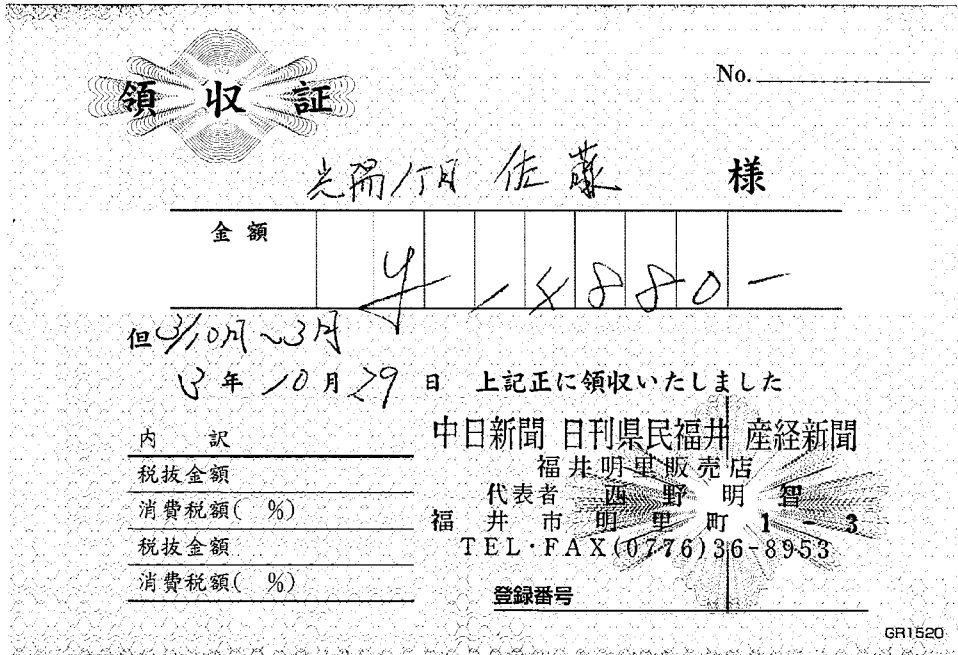 領収証
No.
光陽1丁目 佐藤 様
金額
¥18880-
但 3/10月~3月
3年10月29日 上記正に領収いたしました
内訳
税抜金額
消費税額( %)
税抜金額
消費税額( %)
中日新聞 日刊県民福井 産経新聞
福井明里販売店
代表者 西野明智
福井市明里町1-3
TEL・FAX(0776)36-8953
登録番号
GR1520